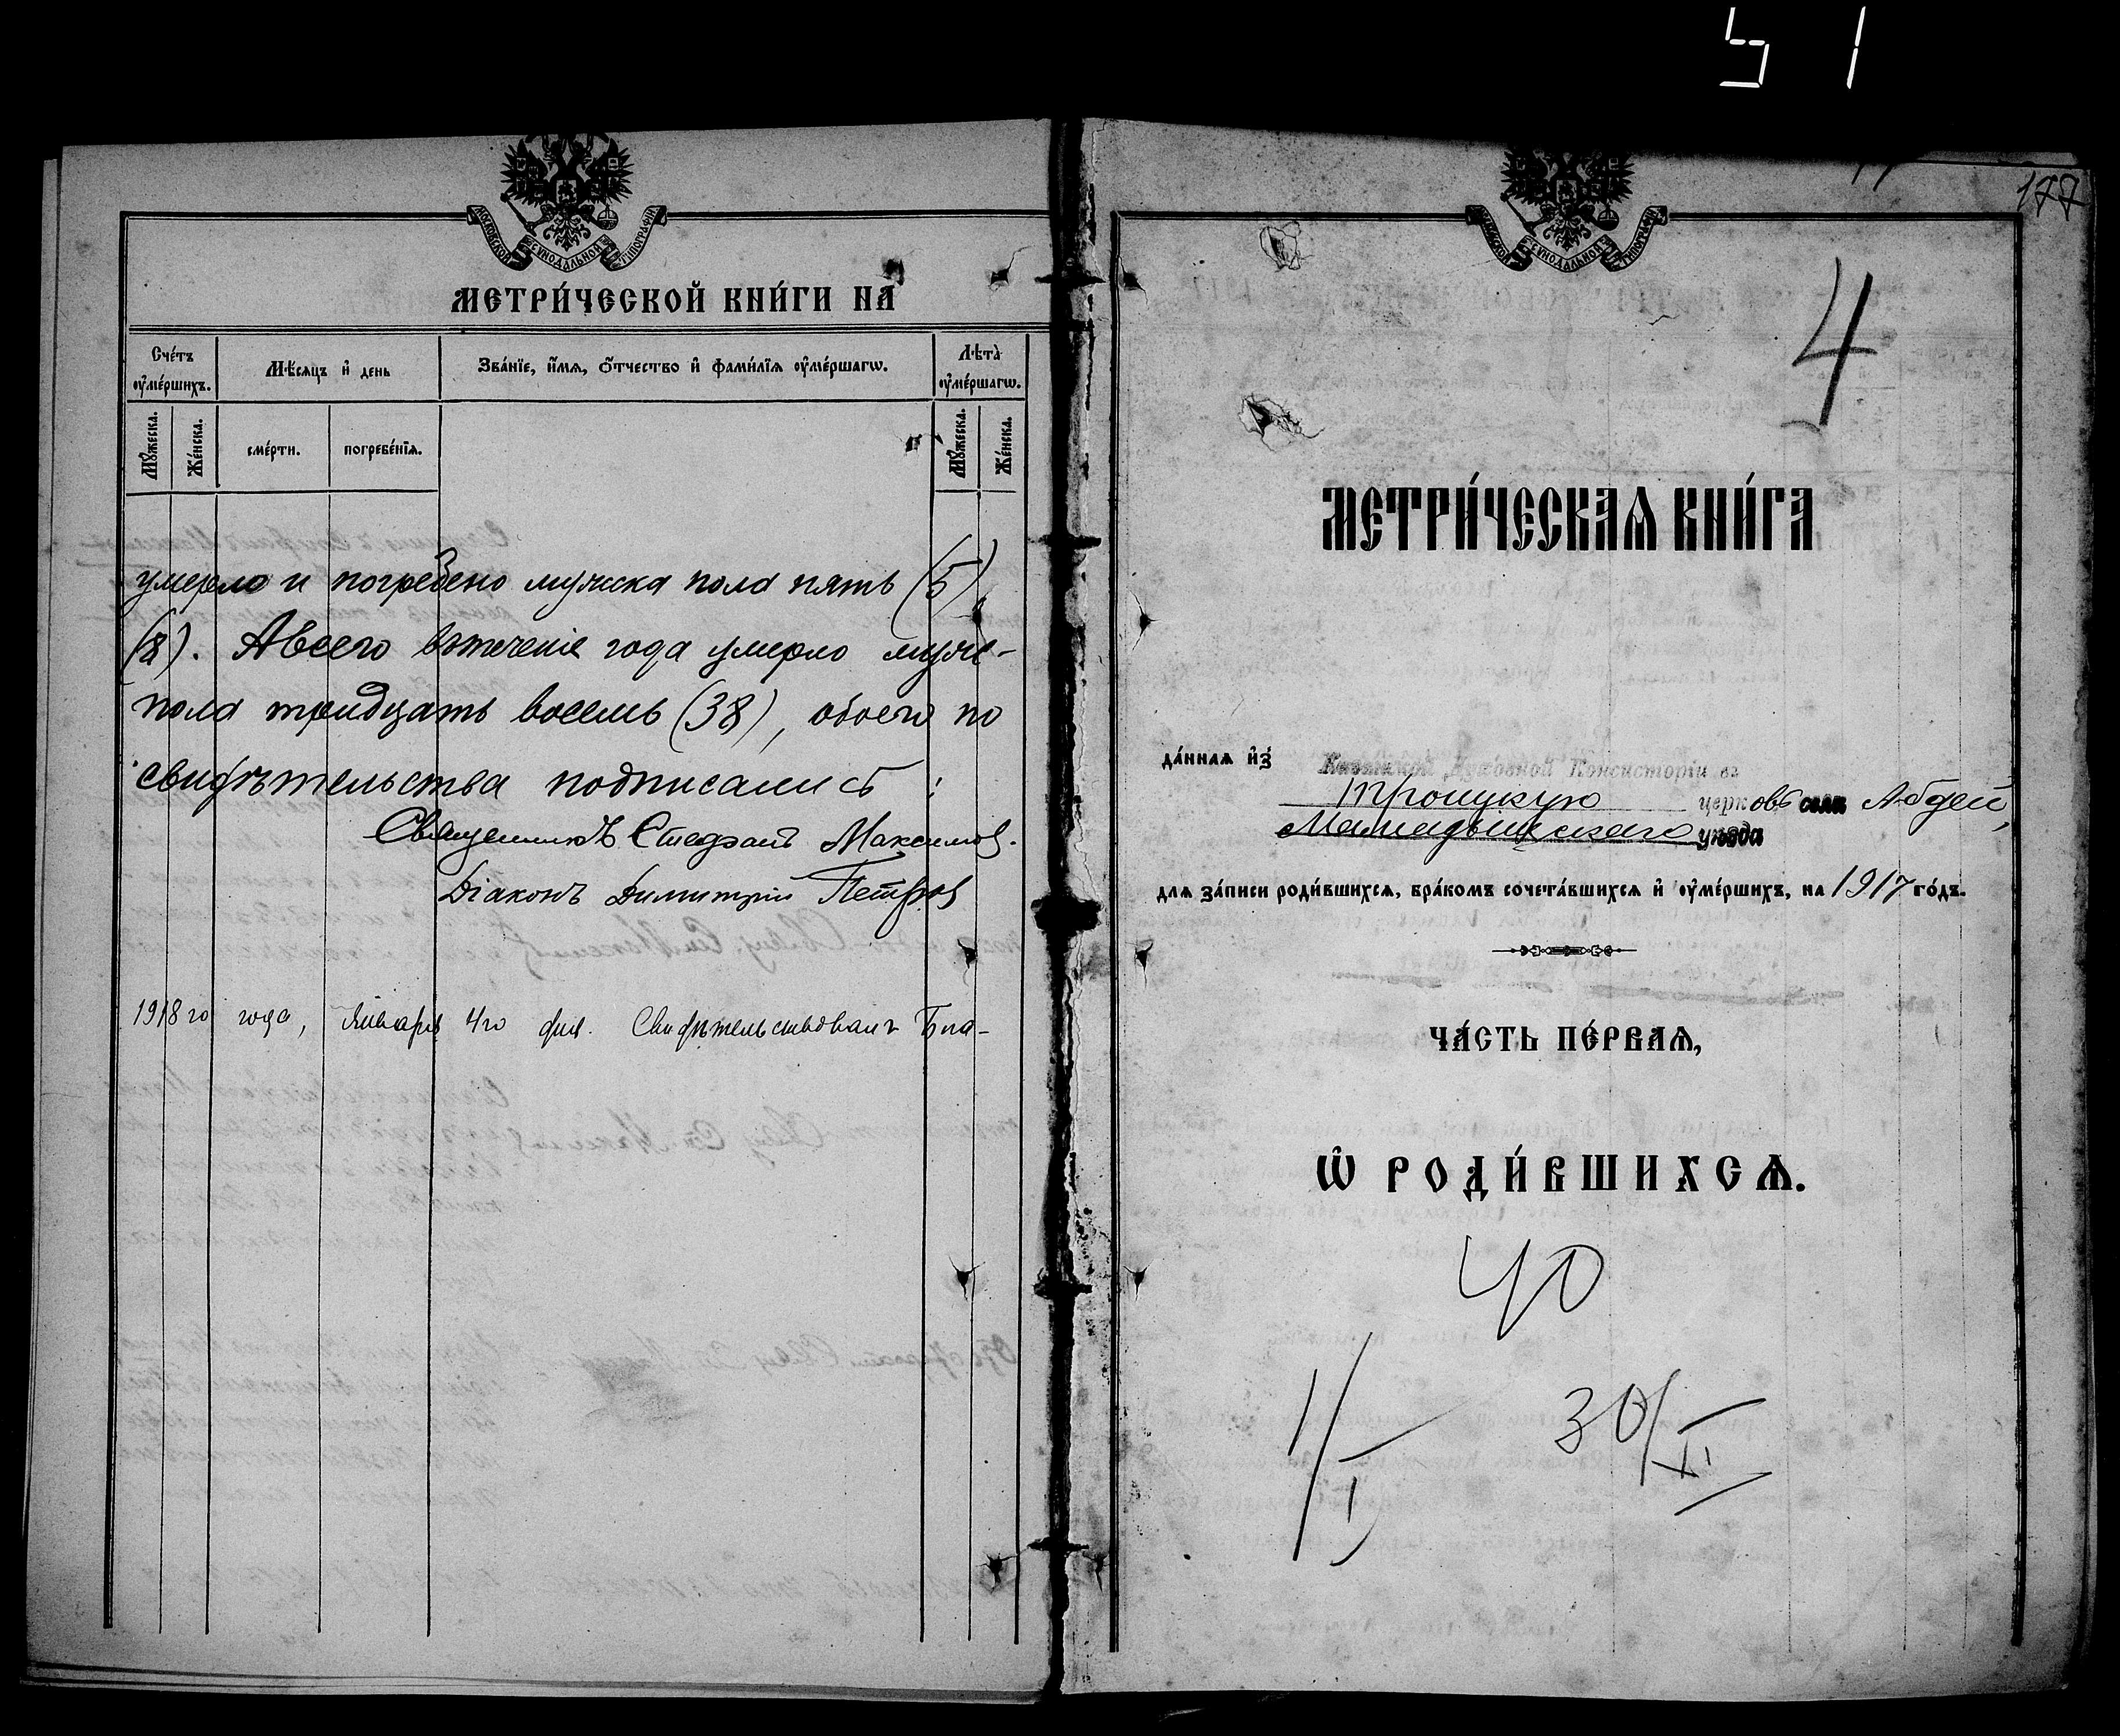 51
МОСКОВСКОЙ СѴНОДАЛЬНОЙ ТИПОГРАФІИ
МЕТРИ́ЧЕСКОЙ КНИ́ГИ НА
Сче́тъ ᲂу҆ме́ршихъ.
Мѣ́сяцъ и҆ день
Зва́нїе, и҆́мѧ, ѻ҆́тчество и҆ фами́лїѧ ᲂу҆ме́ршагѡ.
Лѣта̀ ᲂу҆ме́ршагѡ.
Мꙋ́жеска.
Же́нска.
сме́рти.
погребе́нїѧ.
Мꙋ́жеска.
Же́нска.
умерло и погребено мужска пола пять (5),
(8). А всего втеченіе года умерло муже-
пола тридцать восемь (38), обоего по
свидѣтельства подписались:
Священникъ Стефанъ Максимов.
Діаконъ Димитрій Петров
1918 го года, Января 4го дня. Свидѣтельствовалъ Бла-
МОСКОВСКОЙ СѴНОДАЛЬНОЙ ТИПОГРАФІИ
177
4
МЕТРИ́ЧЕСКАѦ КНИ́ГА
да́ннаѧ и҆з̾ Казанской Духовной Консисторіи въ
Троицкую церковь села Абдей,
Мамадышскаго уѣзда
длѧ за́писи роди́вшихсѧ, бра́комъ сочета́вшихсѧ и҆ ᲂу҆ме́ршихъ, на 1917 го́дъ.
ЧА́СТЬ ПЕ́РВАѦ,
Ѡ҆ РОДИ́ВШИХСѦ.
40
1/I 30/XI